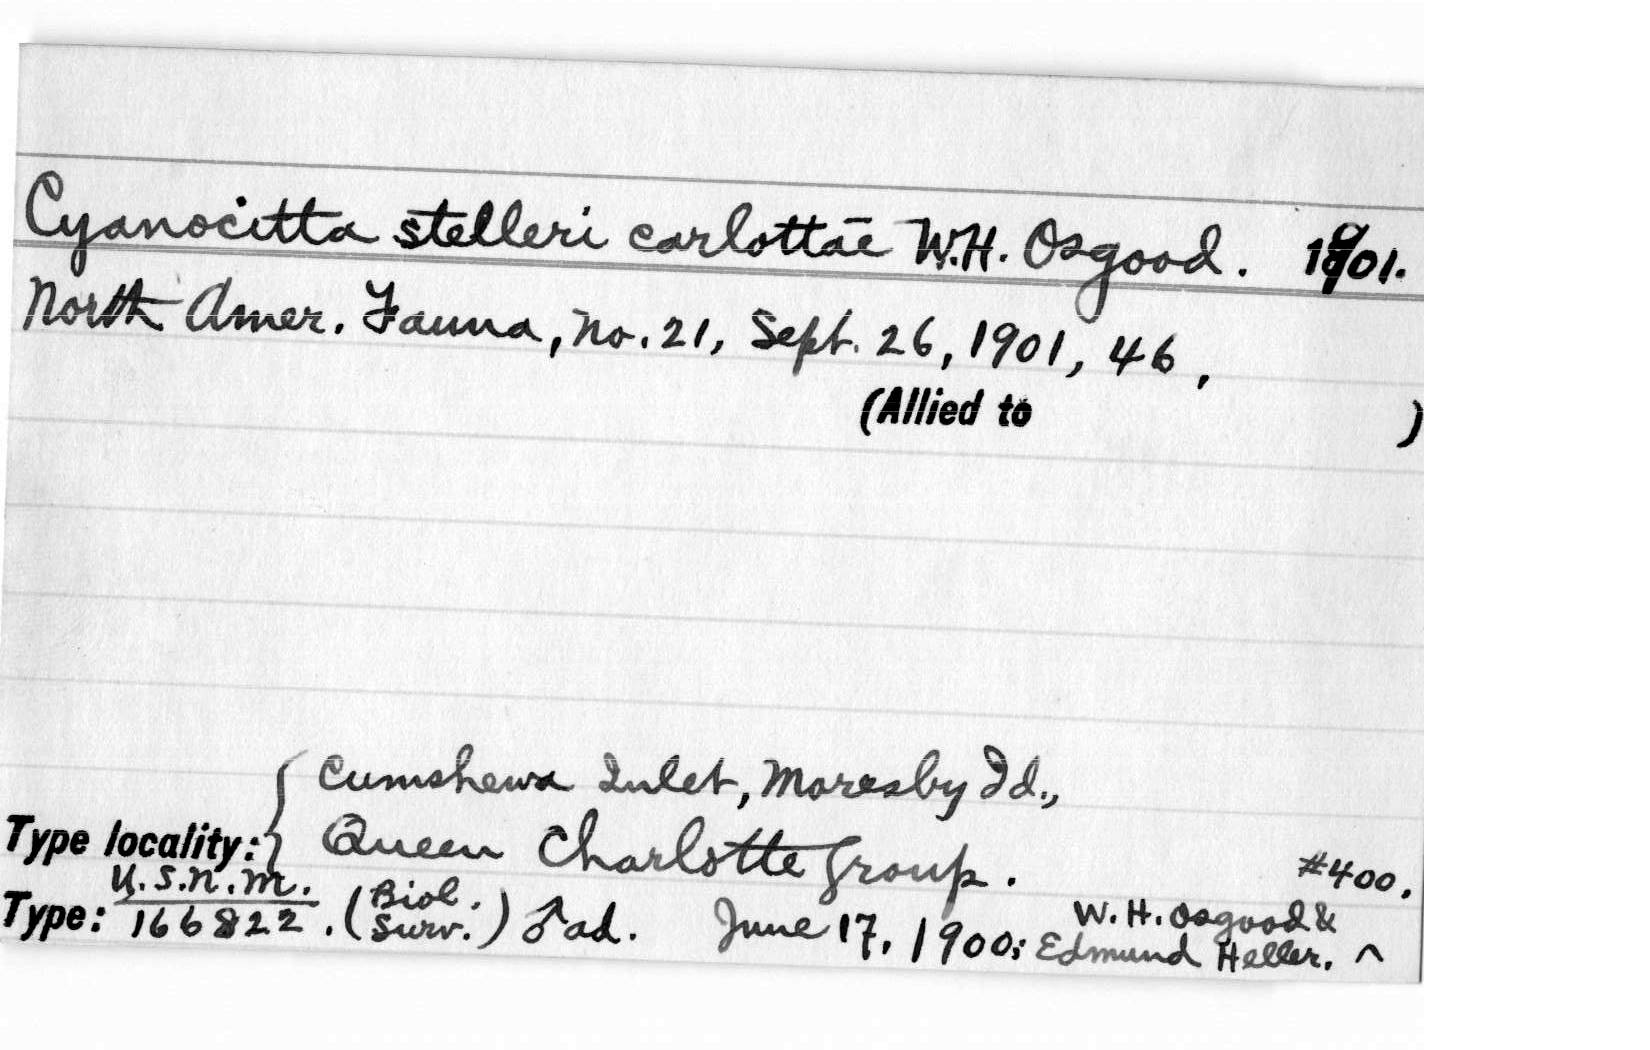 Cyanocitta stelleri carlottae W.H. Osgood. 1901.
North Amer. Fauna, no. 21, Sept. 26, 1901, 46,
(Allied to )
Cumshewa Inlet, Moresby Id.,
Type locality: Queen Charlotte Group. #400.
Type: U.S.N.M. 166822. (Biol. Surv.) ♂ ad. June 17, 1900; W.H. Osgood & Edmund Heller. ^